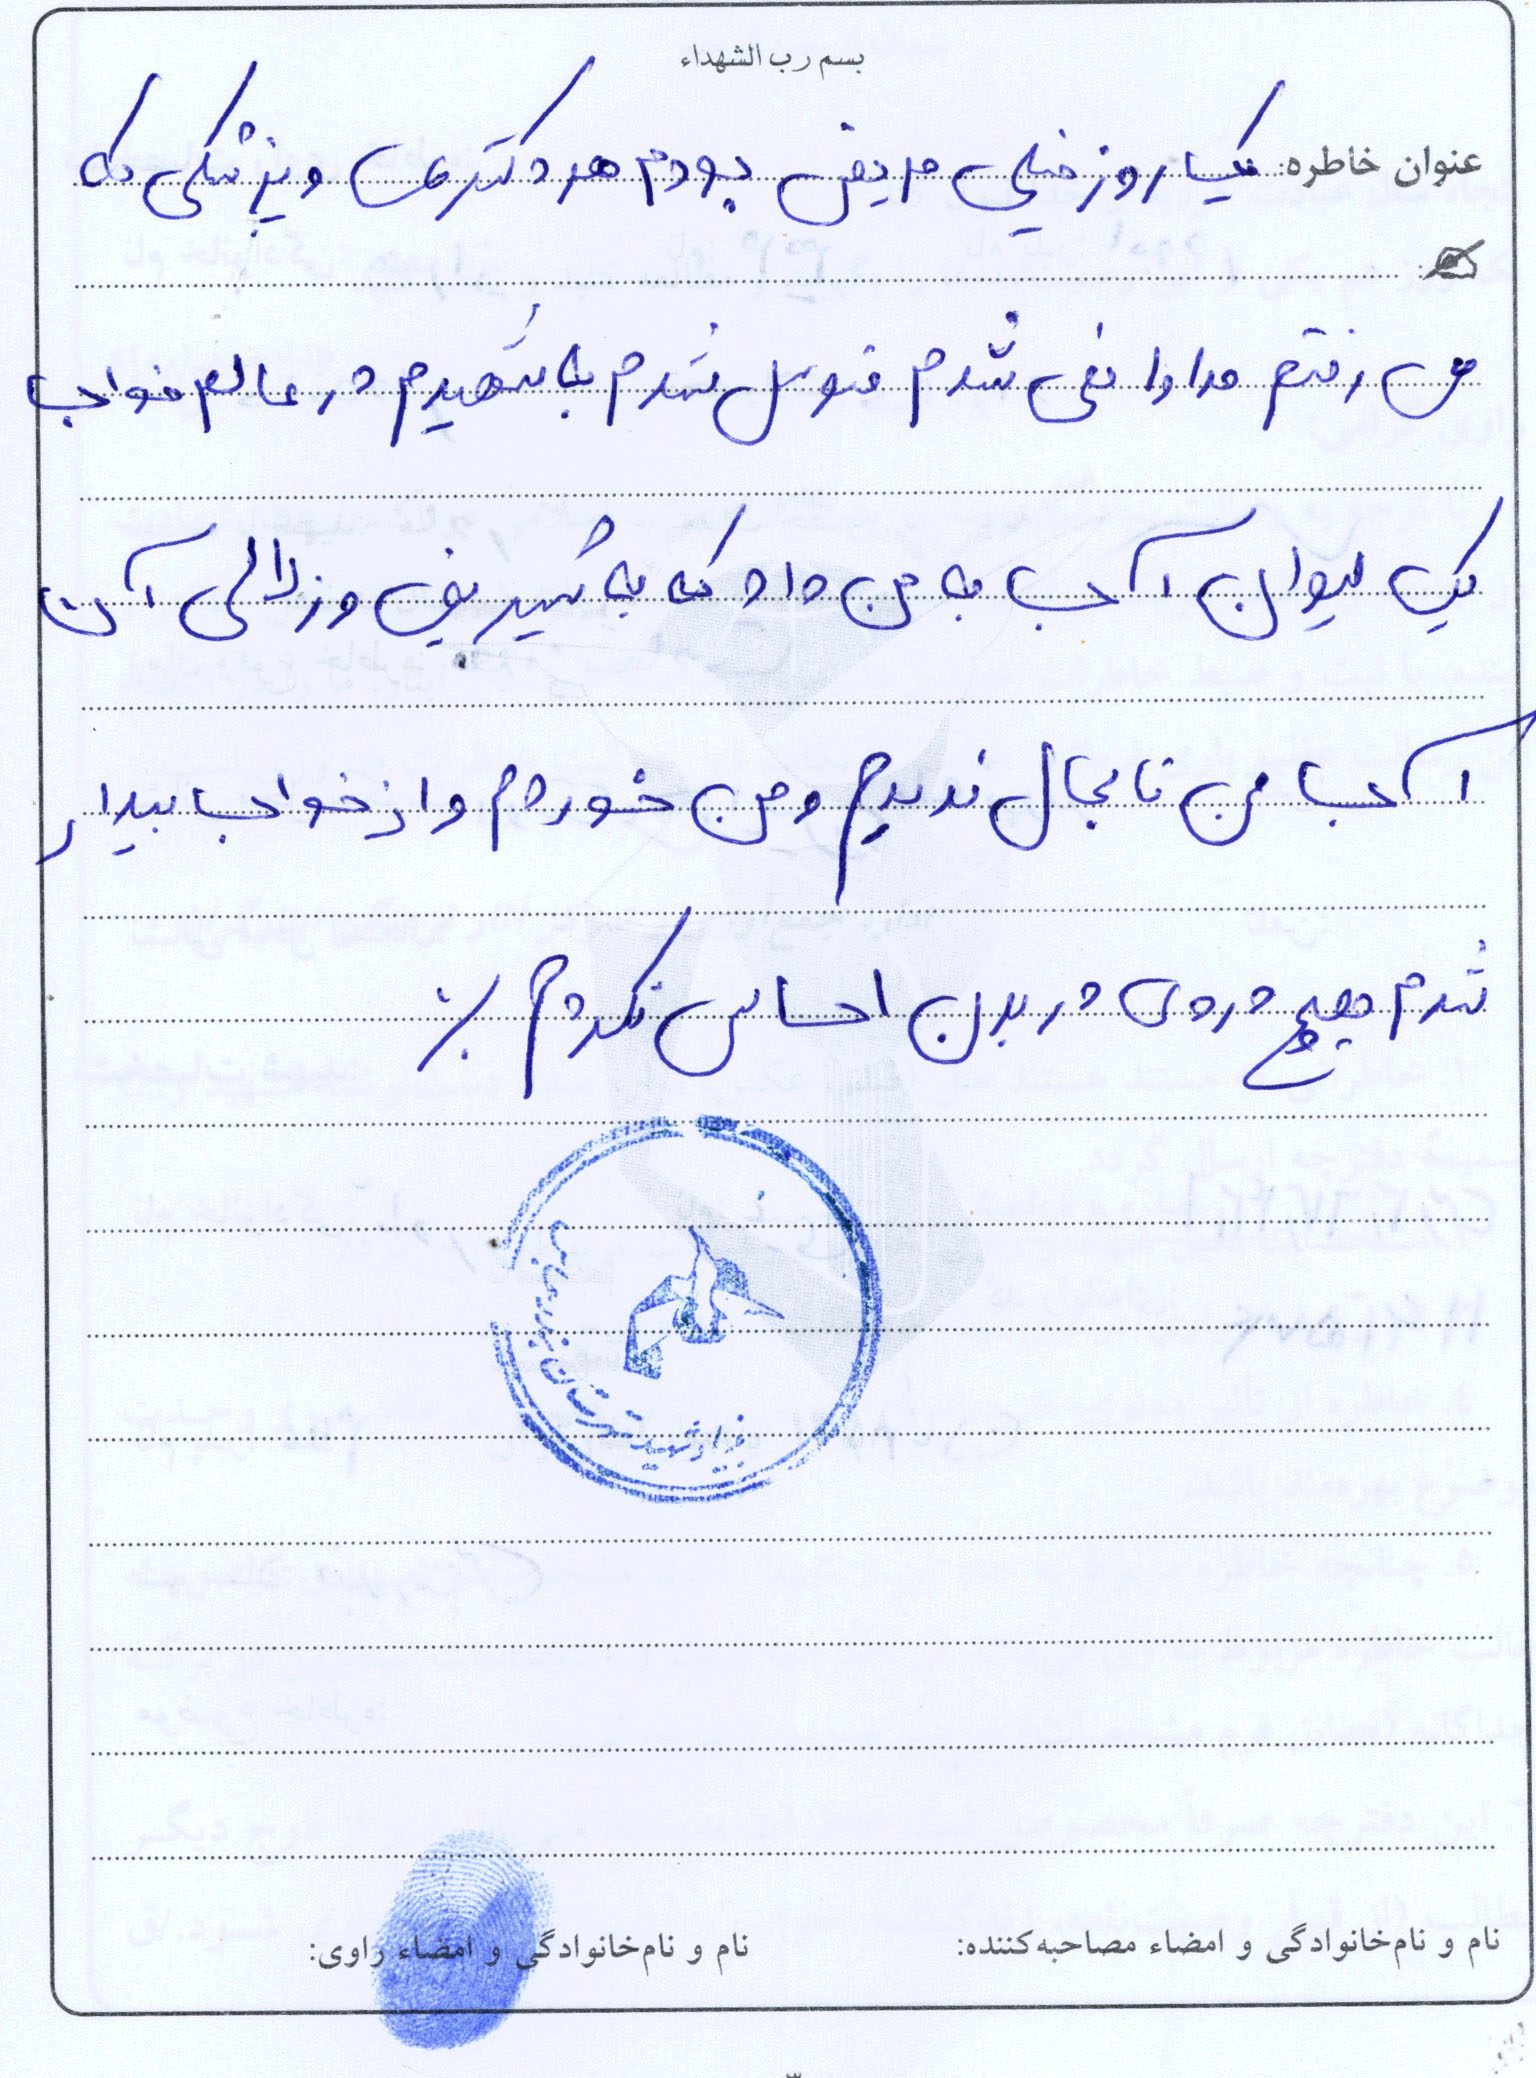 بسم رب الشهداء
عنوان خاطره: یک روز خیلی مریض بودم هر دکتری و پزشکی که
می رفتم مداوا نمی شدم متوسل شدم به شهیدم در عالم خواب
یک لیوان آب به من داد که به شیرینی و زلالی آن
آب من تا بحال ندیدم و من خوردم و از خواب بیدار
شدم هیچ دردی در بدن احساس نکردم
بنیاد شهید شهرستان بندرعباس
نام و نام‌خانوادگی و امضاء مصاحبه‌کننده:
نام و نام‌خانوادگی و امضاء راوی:
۳